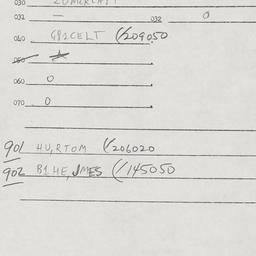 030
032 — 032 0
040 G82CELT (/209050
050
060 0
070 0
901 HU,RTOM (/206020
902 B1HE,JMES (/145050